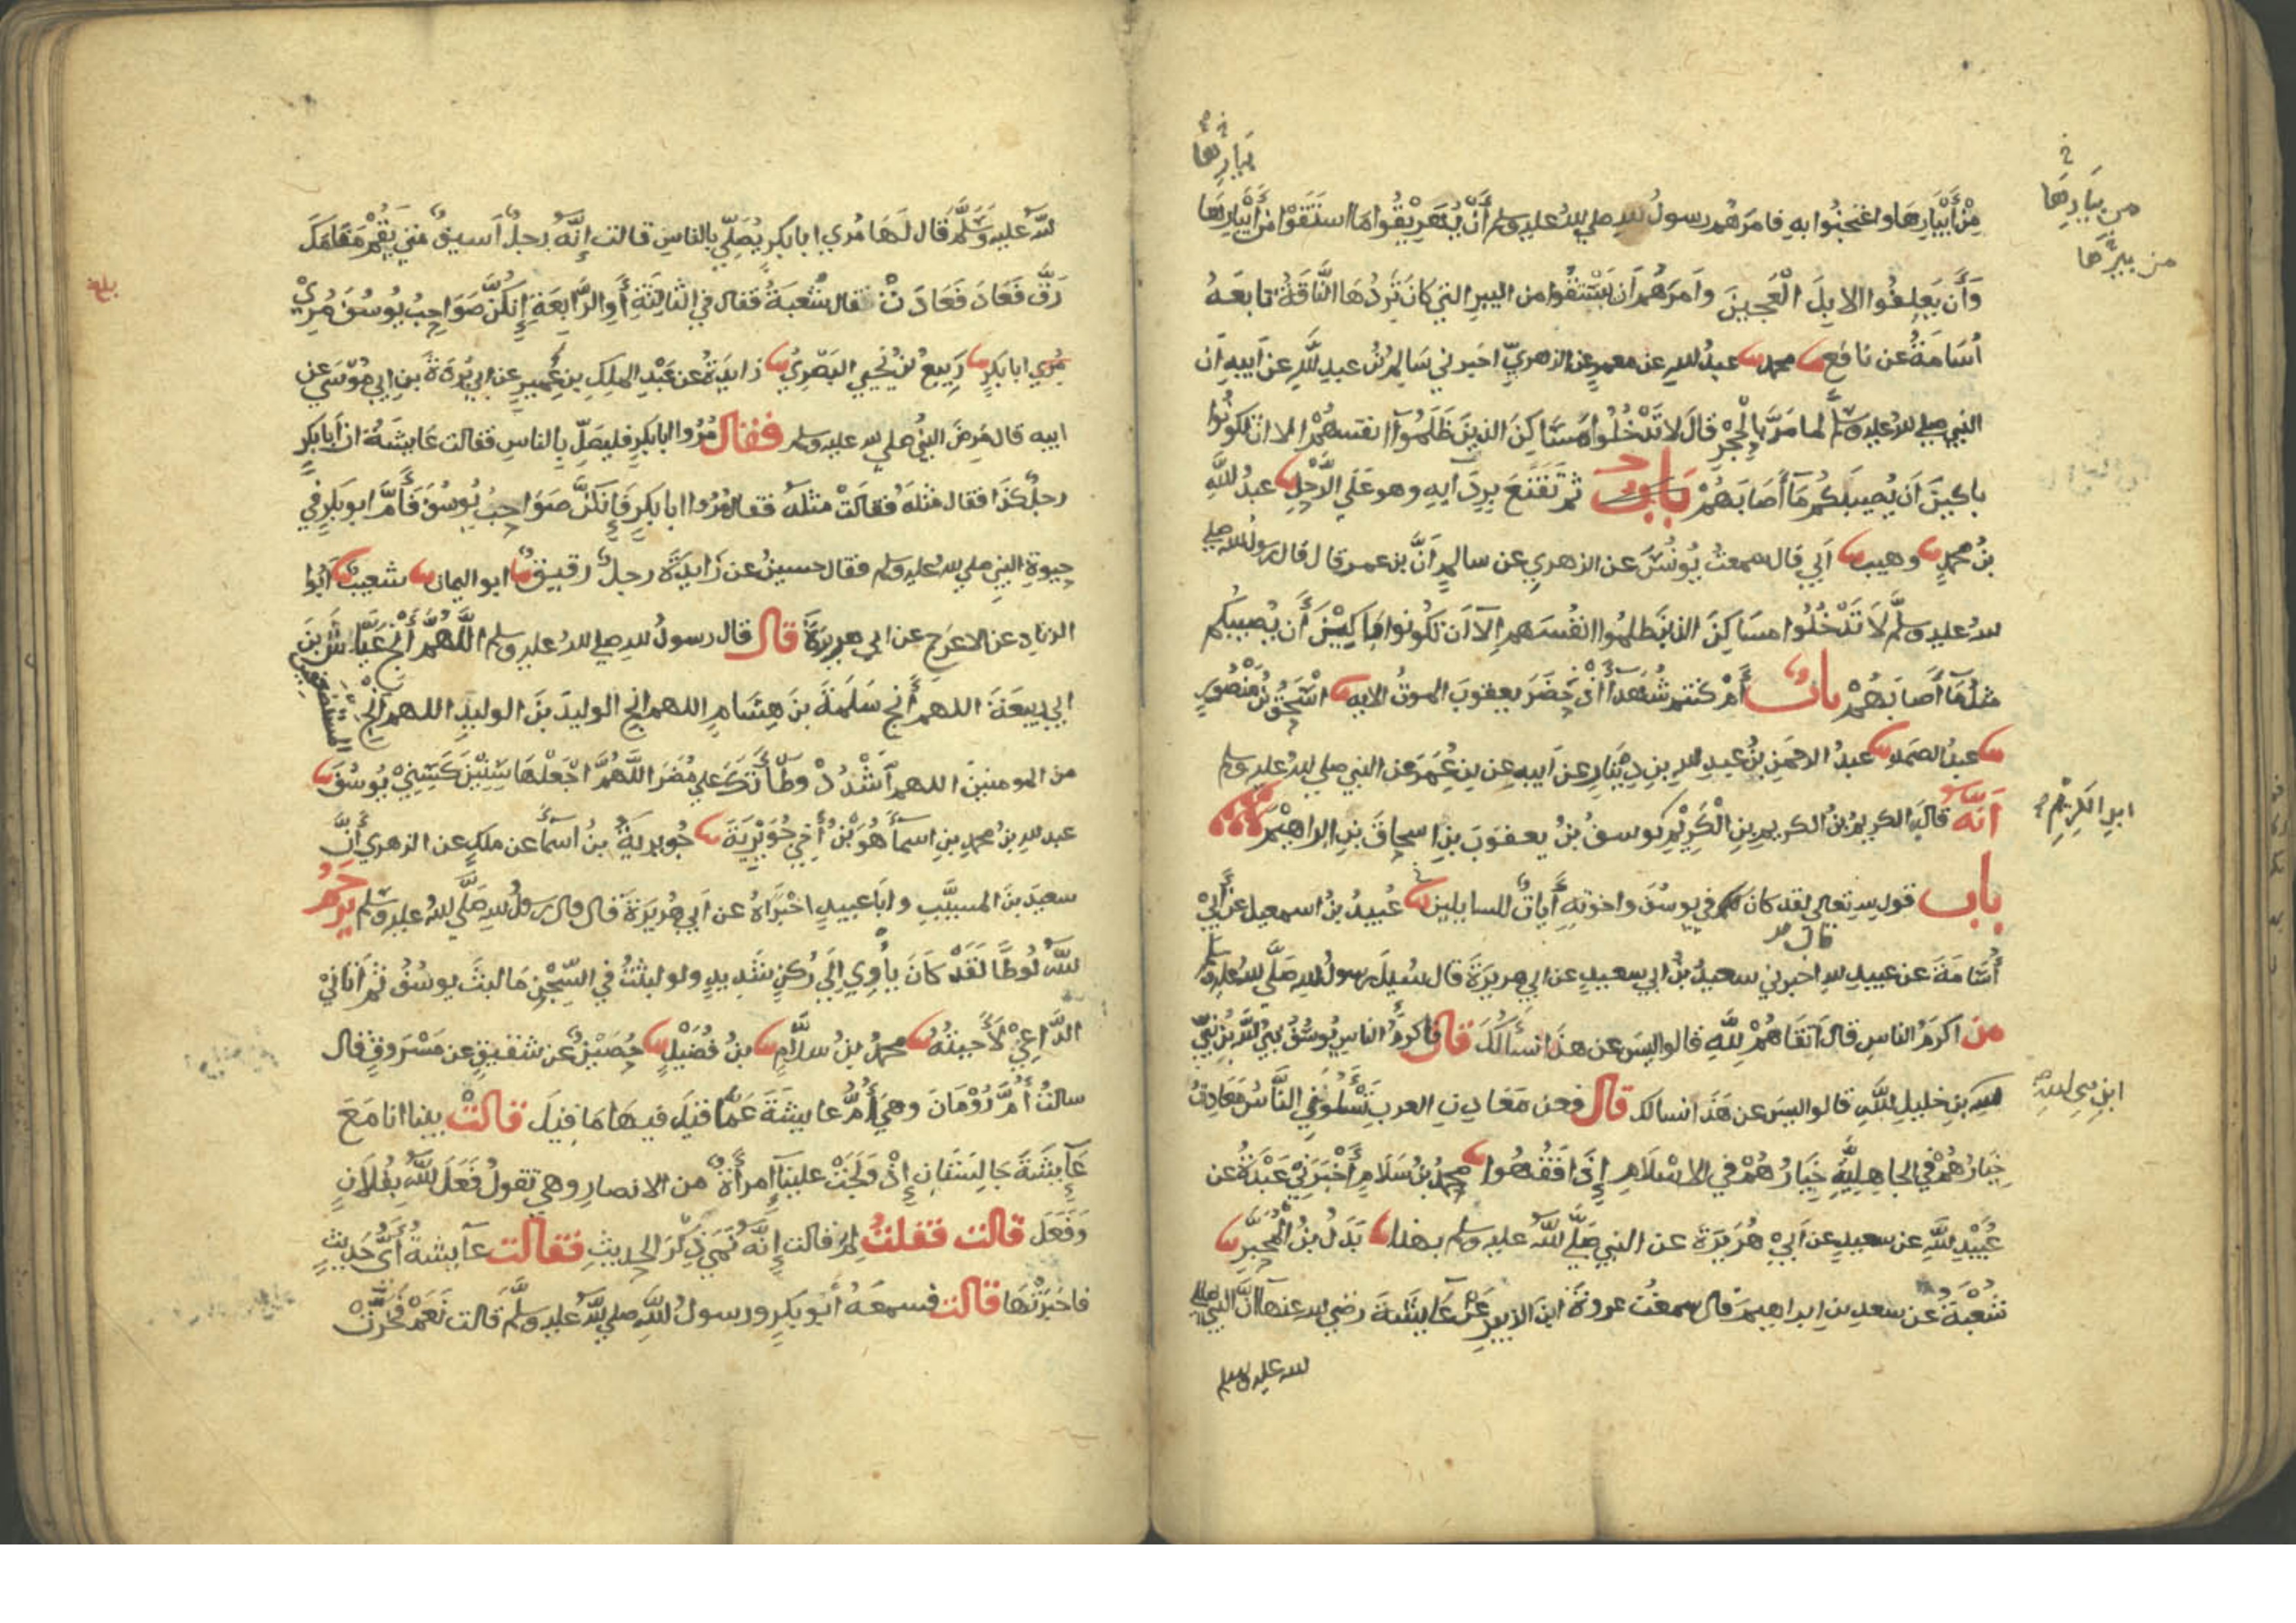 من أبيارها واعتجنوا به فامرهم رسول الله صلى الله عليه وسلم أن يهريقوا ما استقوا من أبيارها
وأن يعلفوا الابل العجين وامرهم أن يستقوا من البير التي كان تردها الناقة تابعه
أسامة عن نافع محمد عبد الله عن معمر عن الزهري اخبرني سالم بن عبد الله عن أبيه ان
النبي صلى الله عليه وسلم لما مر بالحجر قال لا تدخلوا مساكن الذين ظلموا انفسهم الا ان تكونوا
باكين أن يصيبكم ما أصابهم باب ثم تقنع بردايه وهو على الرحل عبد الله
بن محمد وهيب أبي قال سمعت يونس عن الزهري عن سالم أن بن عمر قال قال رسول الله صلى
الله عليه وسلم لا تدخلوا مساكن الذين ظلموا انفسهم إلا ان تكونوا باكين أن يصيبكم
مثل ما أصابهم باب أم كنتم شهدآ إذ حضر يعقوب الموت الايه اسحق بن منصور
عبد الصمد عبد الرحمن بن عبد الله بن دينار عن أبيه عن بن عمر عن النبي صلى الله عليه وسلم
أنه قال الكريم بن الكريم بن الكريم يوسف بن يعقوب بن اسحاق بن ابراهيم
باب قول الله تعالى لقد كان لكم في يوسف واخوته أيات للسايلين عبيد بن اسمعيل عن أبي
أسامة عن عبيد الله اخبرني سعيد بن ابي سعيد عن ابي هريرة قال سيل رسول الله صلى الله عليه وسلم
من اكرم الناس قال اتقاهم لله قالوا ليس عن هذا نسألك قال فاكرم الناس يوسف نبي الله بن نبي
الله بن خليل الله قالوا ليس عن هذا نسالك قال فعن معادن العرب تسلوني الناس معادن
خيارهم في الجاهلية خيارهم في الاسلام إذا فقهوا محمد بن سلام أخبرني عبدة عن
عبيد الله عن سعيد عن أبي هريرة عن النبي صلى الله عليه وسلم بهذا بدل بن المحبر
شعبة عن سعد بن ابراهيم قال سمعت عروة ابن الزبير عن عايشة رضي الله عنها ان النبي صلى
الله عليه وسلم
بيارها
من بيارها
من بيرها
ابن الكريم
قال
ابن نبي الله
الله عليه وسلم قال لها مري ابا بكر يصلي بالناس قالت إنه رجل أسيف متى يقم مقامك
رق فعاد فعادت قال شعبة فقال في الثالثة أو الرابعة إنكن صواحب يوسف مري
مري ابا بكر ربيع بن يحيى البصري زايدة عن عبد الملك بن عمير عن ابي بردة بن ابي موسى عن
ابيه قال مرض النبي صلى الله عليه وسلم فقال مروا ابا بكر فليصل بالناس فقالت عايشة ان أبا بكر
رجل كذا فقال مثله فقالت مثله فقال مروا ابا بكر فإنكن صواحب يوسف فأم ابو بكر في
حيوة النبي صلى الله عليه وسلم فقال حسين عن زايدة رجل رقيق ابو اليمان شعيب أبوا
الزناد عن الاعرج عن ابي هريرة قال قال رسول الله صلى الله عليه وسلم اللهم أنج عياش بن
ابي ربيعة اللهم أنج سلمة بن هشام اللهم انج الوليد بن الوليد اللهم انج المستضعفين
من المومنين اللهم أشدد وطأتك على مضر اللهم اجعلها سنين كسني يوسف
عبد الله بن محمد بن اسمآ هو بن أخي جويرية جويرية بن أسمآ عن ملك عن الزهري أن
سعيد بن المسيب وابا عبيد اخبراه عن أبي هريرة قال قال رسول الله صلى الله عليه وسلم يرحم
الله لوطا لقد كان يأوي إلى ركن شديد ولو لبثت في السجن ما لبث يوسف ثم أتاني
الداعي لأجبته محمد بن سلام بن فضيل حصين عن شقيق عن مسروق قال
سالت أم رومان وهي أم عايشة عما قيل فيها ما قيل قالت بينا انا مع
عآيشة جالستان إذ ولجت علينا إمرأة من الانصار وهي تقول فعل الله بفلان
وفعل قالت فقلت لم قالت إنه نمى ذكر الحديث فقالت عآيشة أي حديث
فاخبرتها قالت فسمعه أبو بكر ورسول الله صلى الله عليه وسلم قالت نعم فخرت
بلغ